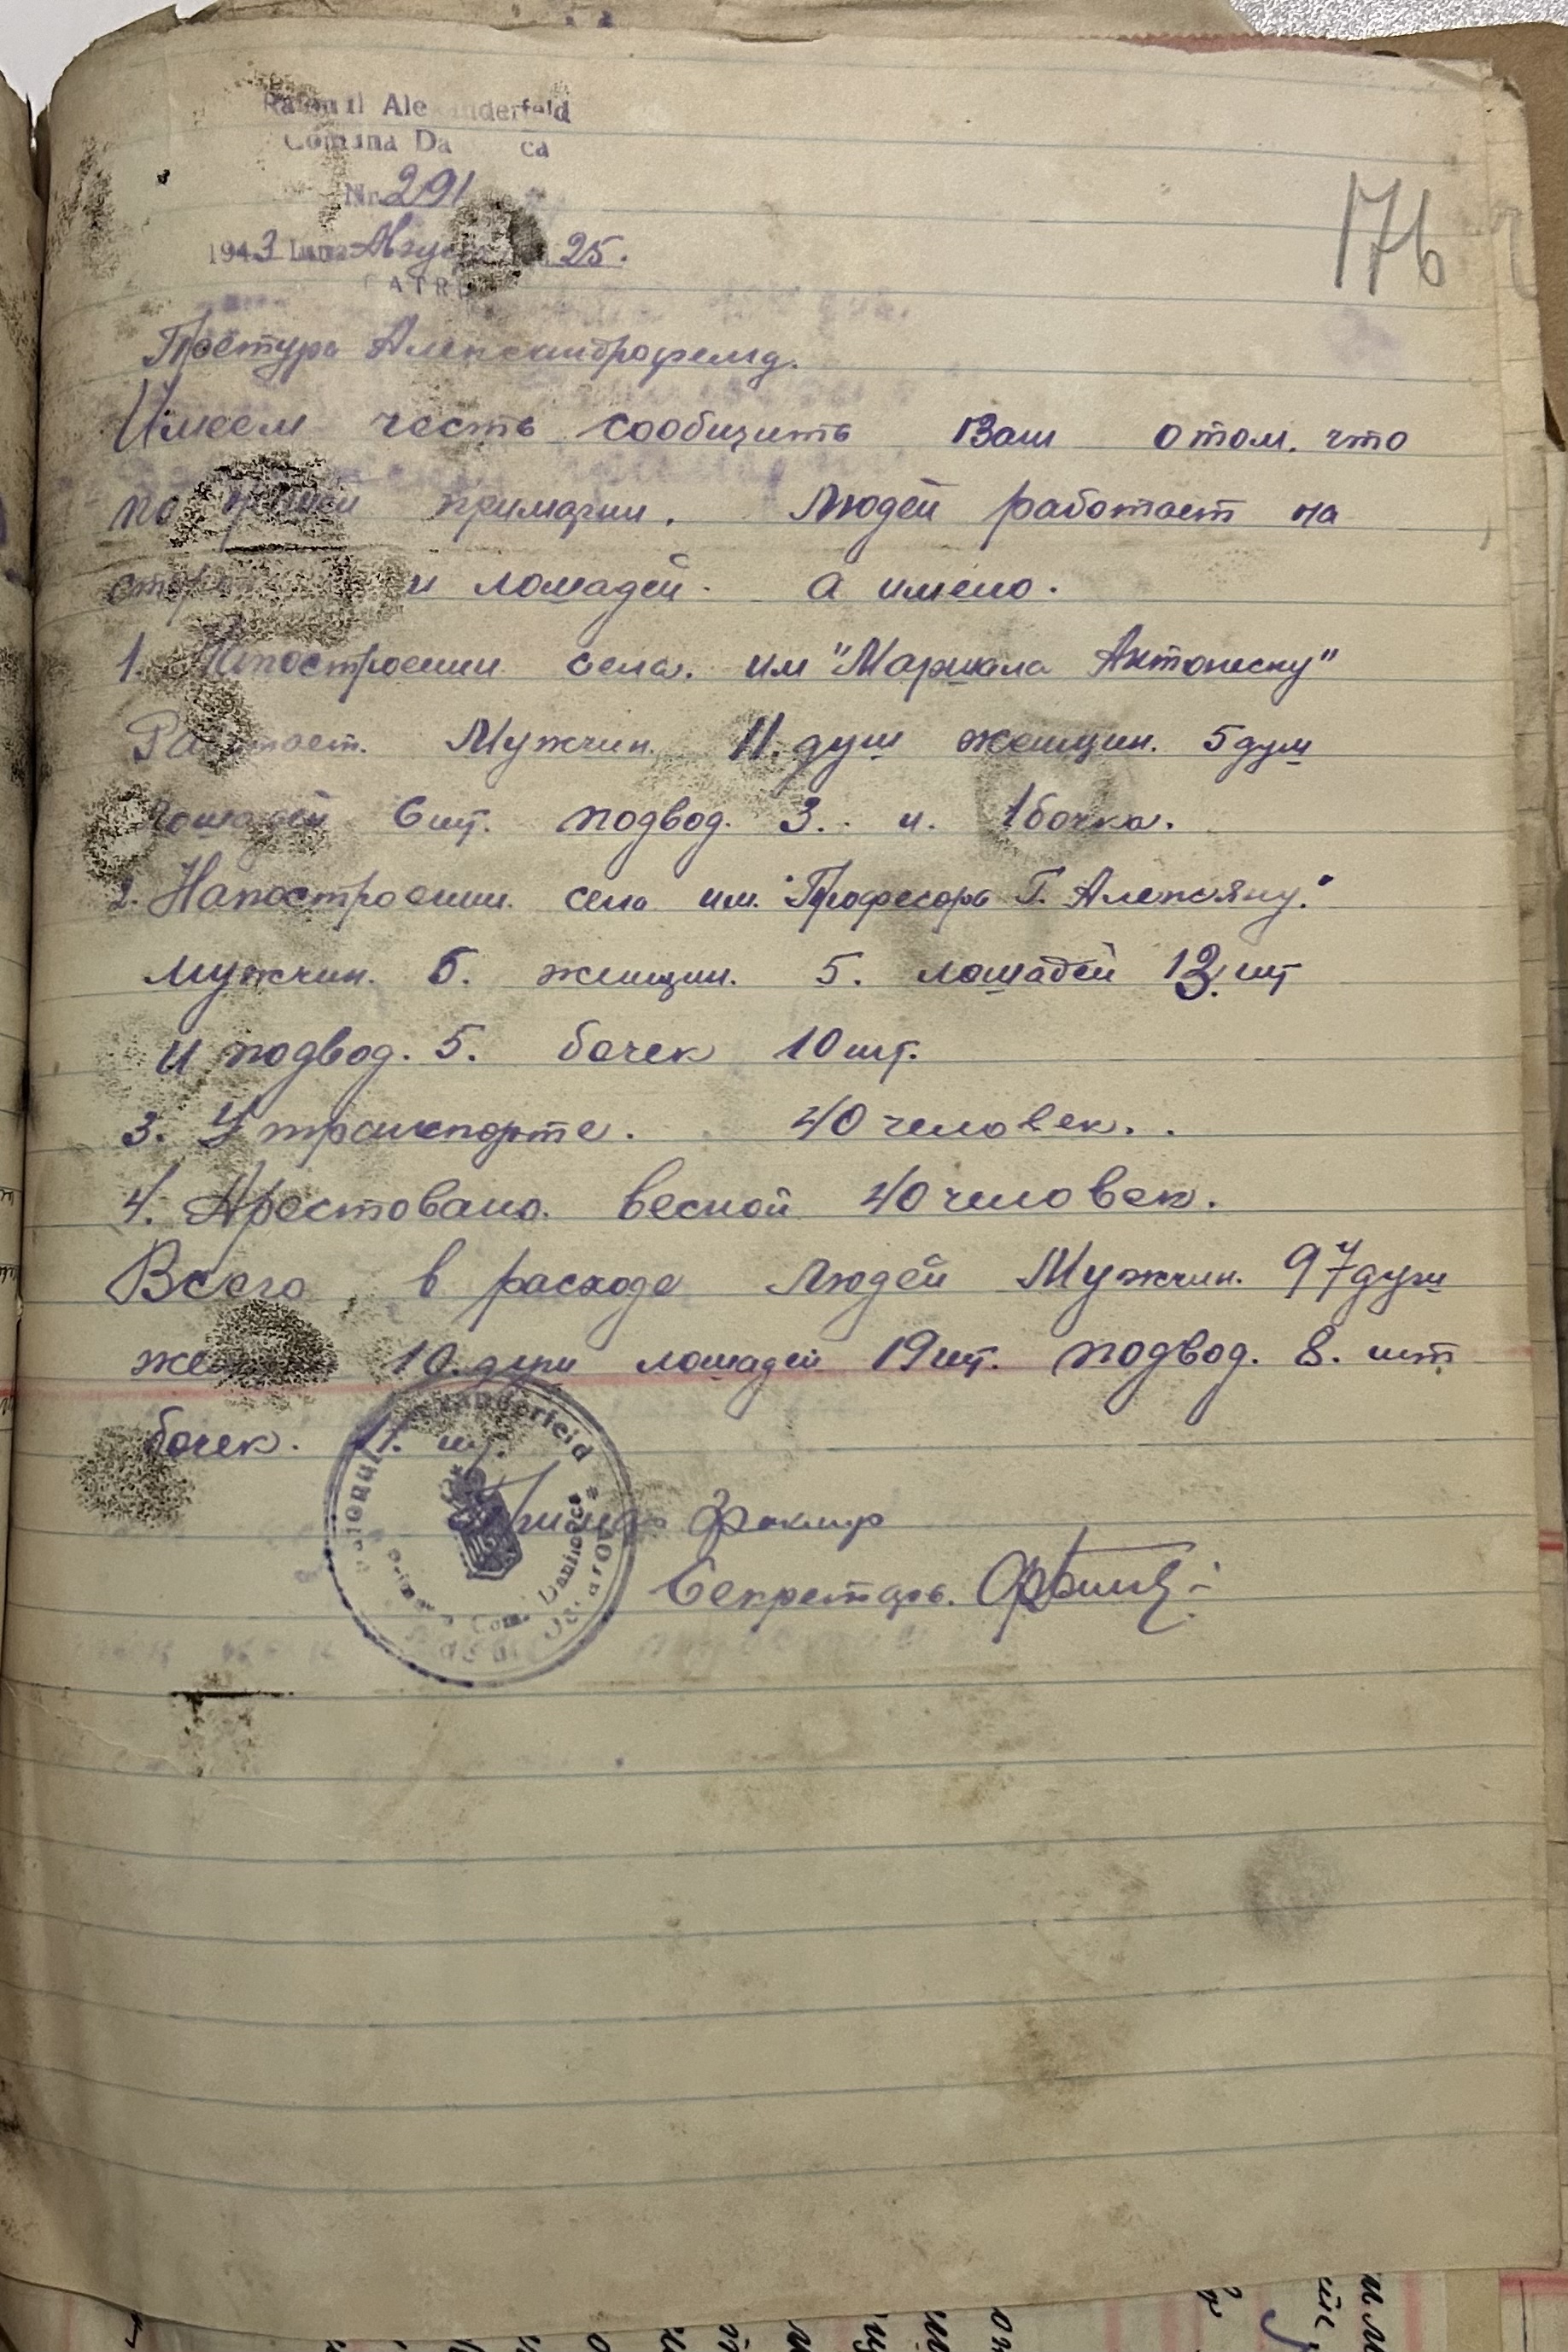 Raionul Alexanderfeld
Comuna Da ca
Nr. 291
1943 Luna Август 25.
176
Претура Александрофельд.
Имеем честь сообщить Вам отом. что
по нашей примарии. Людей работает на
стороне и лошадей. а имено.
1. Напостроении села. им "Маршала Антонеску"
Работает. Мужчин. 11. душ женщин. 5 душ
Лошадей 6 шт. подвод. 3. и. 1 бочка.
2. Напостроении. села им. "Професора Г. Алексяну."
мужчин. 6. женщин. 5. лошадей 13. шт
и подвод. 5. бочек 10 шт.
3. У транспорте. 40 человек.
4. Арестовано. весной 40 человек.
Всего в расходе Людей Мужчин. 97 душ
женщин 10. душ лошадей 19 шт. подвод. 8. шт.
бочек. 11. шт.
Примарь
Секретарь.